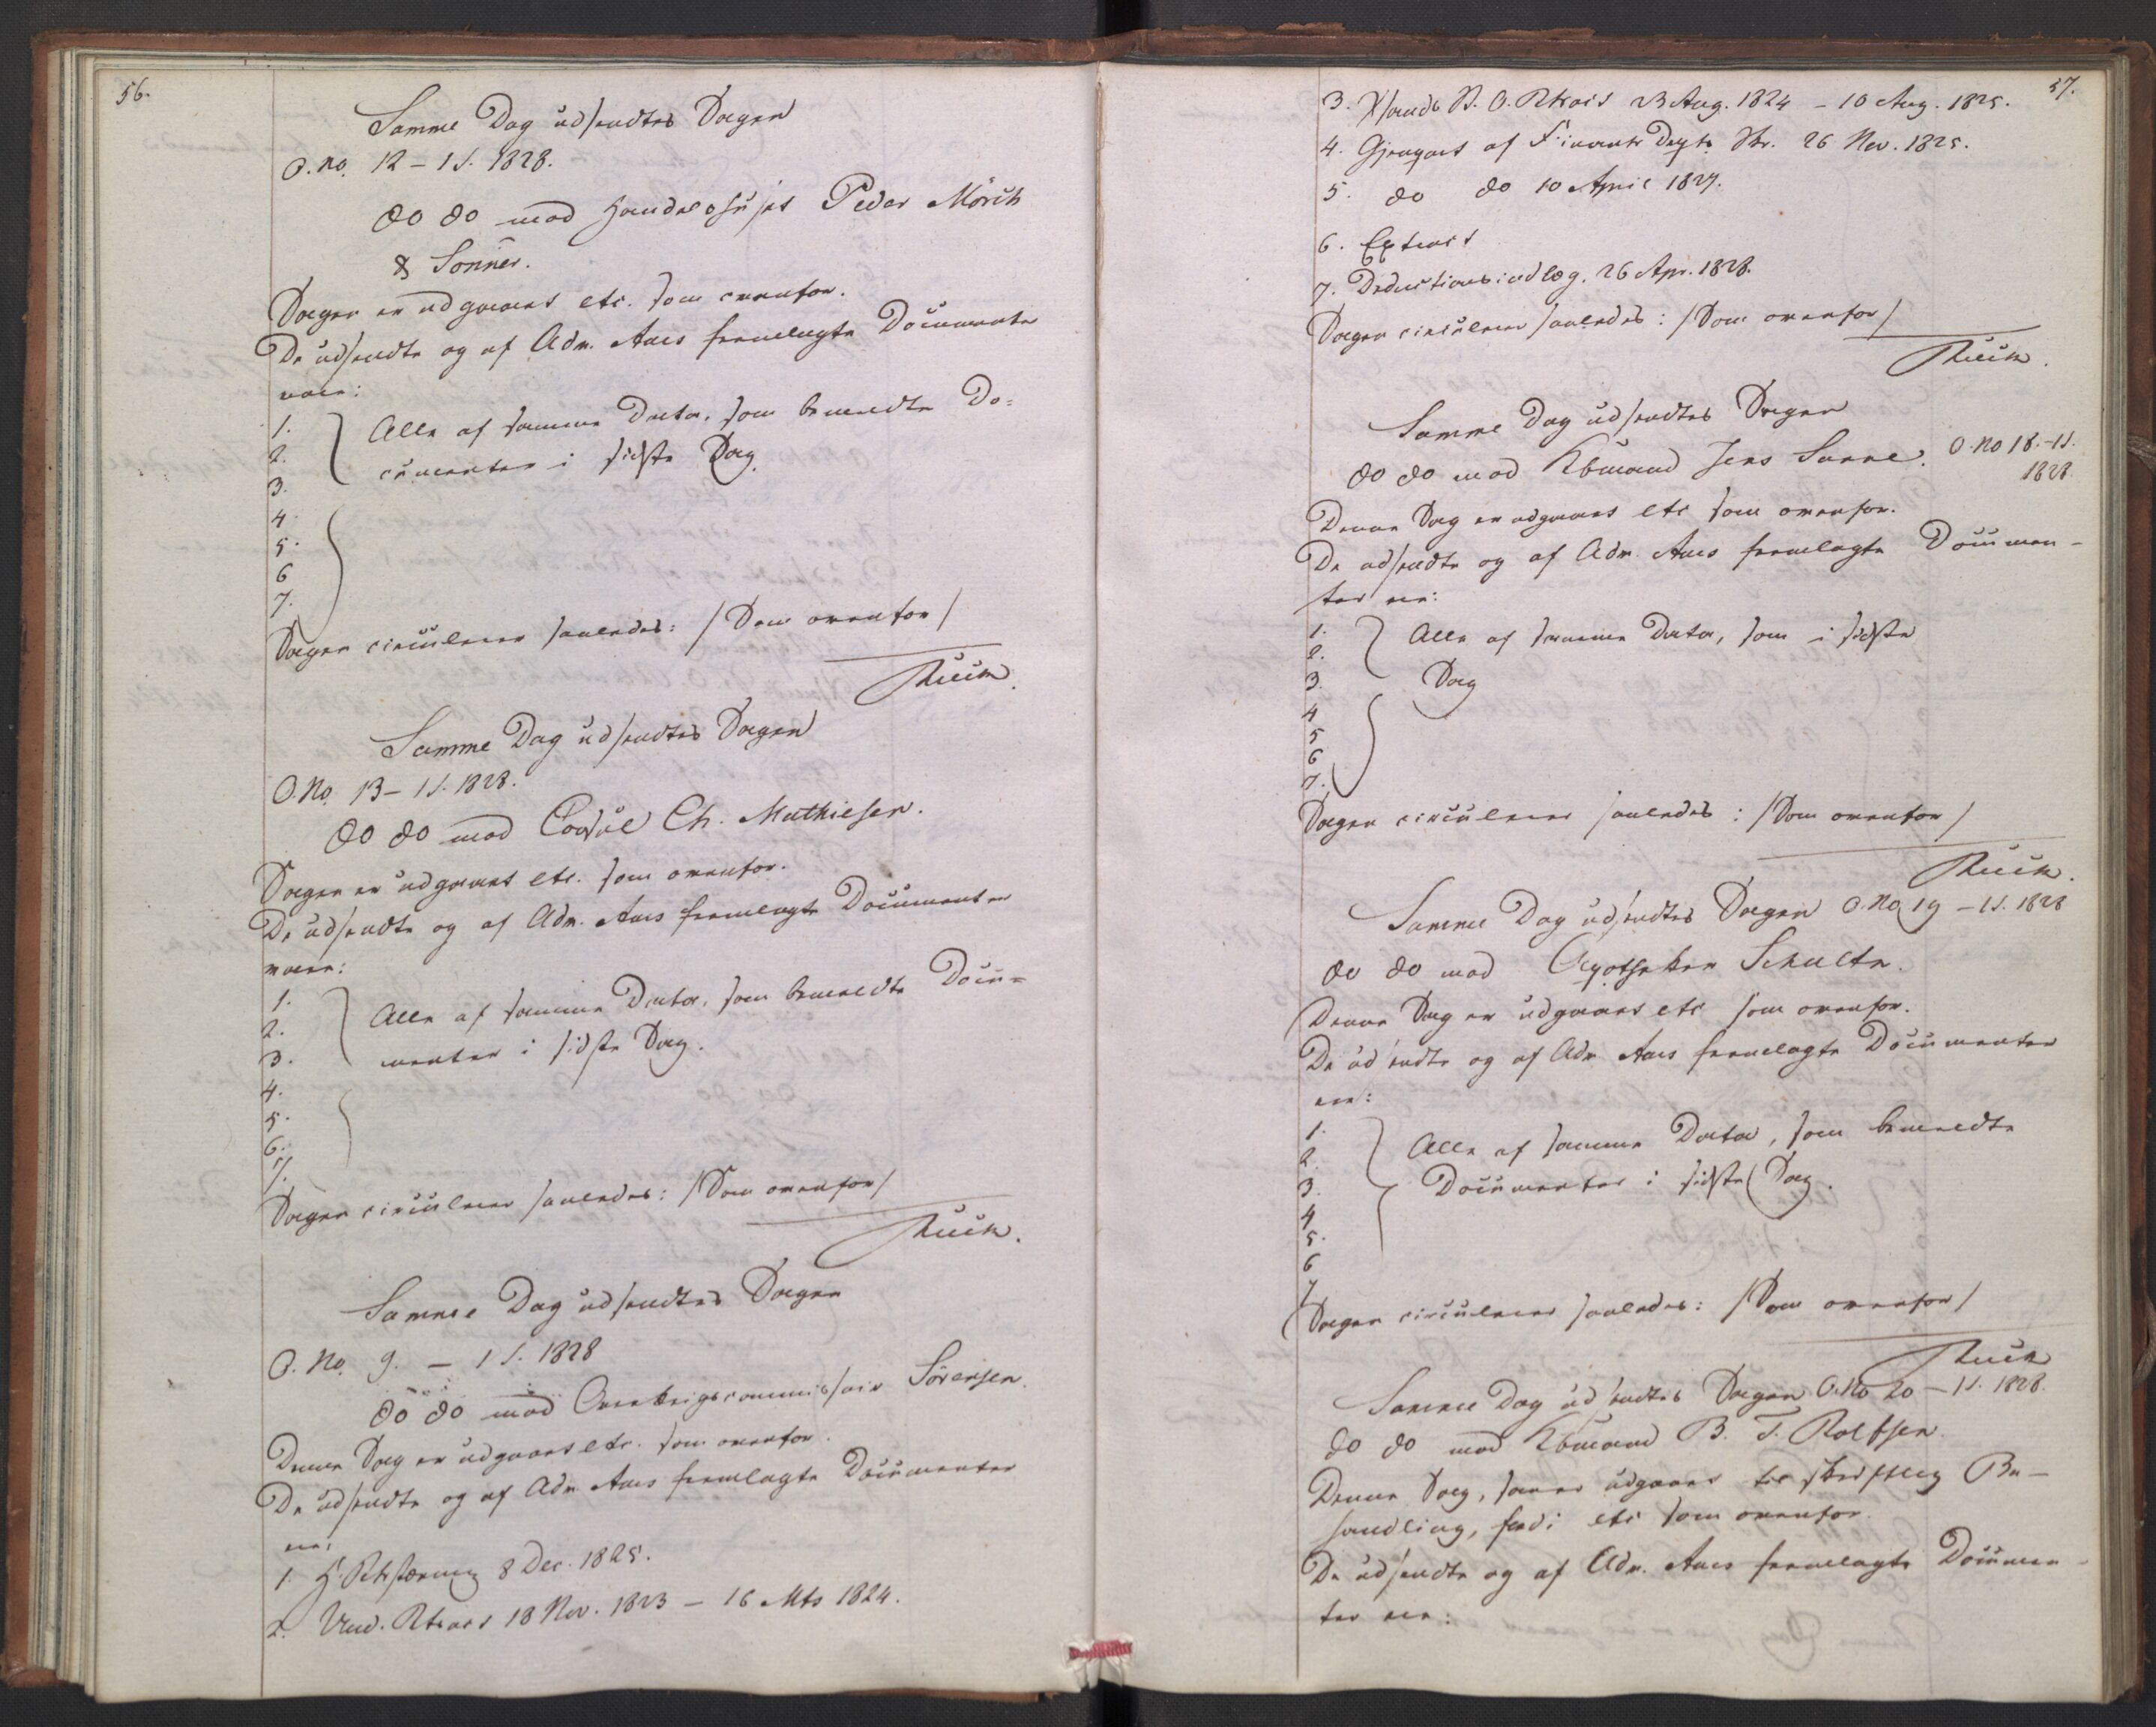 56.
Samme Dag udsendtes Sagen
O. No. 12 – 1 S. 1828.
do do mod Handelshuset Peder Mörch
& Sönner.
Sagen er udgaaet etc. som ovenfor.
De udsendte og af Adv. Aars fremlagte Documenter
vare:
1.
2. Alle af samme Data, som bemeldte Do-
3. cumenter i sidste Sag.
4.
5.
6
7.
Sagen circulerer saaledes: /Som ovenfor/
Samme Dag udsendtes Sagen
O. No. 13 – 1 S. 1828.
do do mod Consul Ch. Mathiesen.
Sagen er udgaaet etc. som ovenfor.
De udsendte og af Adv. Aars fremlagte Documenter
vare:
1.
2. Alle af samme Data, som bemeldte Docu-
3. menter i sidste Sag.
4.
5.
6.
7.
Sagen circulerer saaledes: /Som ovenfor/
Samme Dag udsendtes Sagen
O. No. 9. – 1 S. 1828
do do mod Overkrigscommissair Sörensen.
Denne Sag er udgaaet etc. som ovenfor.
De udsendte og af Adv. Aars fremlagte Documenter
ere:
1. H. Rtsstævning 8 Dec. 1825.
2. Und. Rtsact 18 Nov. 1823 – 16 Mts 1824.
57.
3. 23 Aug. 1824 – 10 Aug. 1825.
4. Gjenpart af Finants Depts Skr. 26 Nov. 1825.
5. do do 10 April 1827.
6. Extract
7. Deductionsindlæg. 26 Apr. 1828.
Sagen circulerer saaledes: /Som ovenfor/
Samme Dag udsendtes Sagen
do do mod Kbmand Jens Sanne. O. No 18. – 1 S.
1828.
Denne Sag er udgaaet etc som ovenfor.
De udsendte og af Adv. Aars fremlagte Documen-
ter ere:
1.
2. Alle af samme Data, som i sidste
3. Sag
4
5
6
7.
Sagen circulerer saaledes: /Som ovenfor/
Samme Dag udsendtes Sagen O. No. 19 – 1 S. 1828
do do mod Apotheker Schulte.
Denne Sag er udgaaet etc som ovenfor.
De udsendte og af Adv Aars fremlagte Documenter
ere:
1.
2. Alle af samme Data, som bemeldte
3. Documenter i sidste Sag.
4
5.
6
7
Sagen circulerer saaledes: /Som ovenfor/
Samme Dag udsendtes Sagen O. No. 20 – 1 S. 1828.
do do mod Kbmand B. T. Rolfsen.
Denne Sag, som er udgaaet til skriftlig Be-
handling, fordi etc som ovenfor.
De udsendte og af Adv. Aars fremlagte Documen-
ter ere: